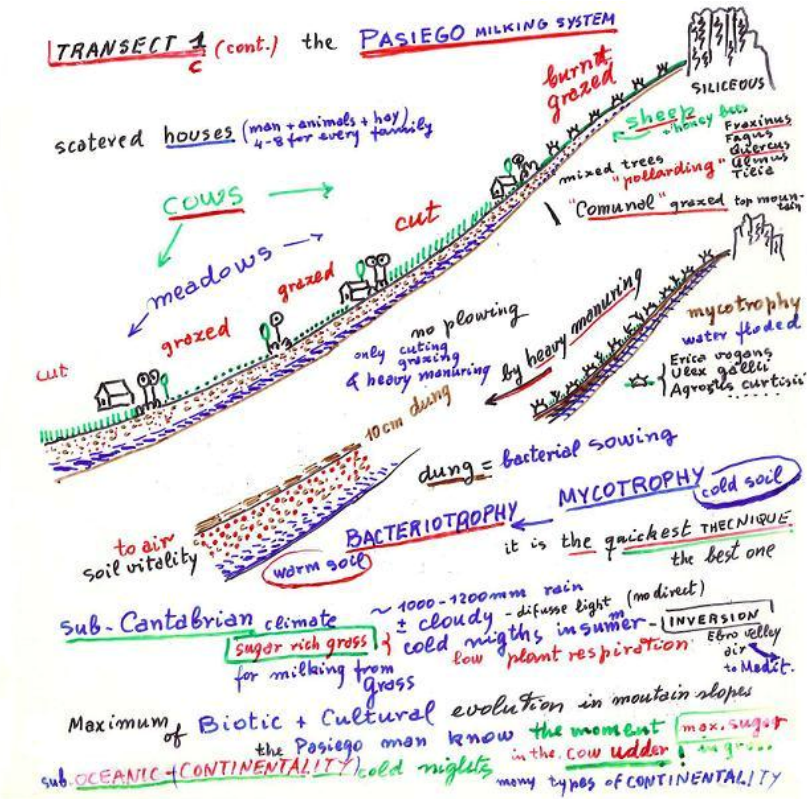 TRANSECT 1 (cont.) the PASIEGO MILKING SYSTEM
C
burnt
grazed
SILICEOUS
scatered houses (man + animals + hay)
4-8 for every family
sheep
+ honey bees
Fraxinus
Fagus
Quercus
Ulmus
Tilia
mixed trees
"pollarding"
"Comunal" grazed top moun-
tain
COWS
cut
meadows
grazed
grazed
cut
no plowing
only cuting
grazing
& heavy manuring
by heavy manuring
mycotrophy
water floded
Erica vagans
Ulex gallii
Agrostis curtisii
10cm dung
dung = bacterial sowing
MYCOTROPHY cold soil
BACTERIOTROPHY
to air
soil vitality
warm soil
it is the quickest THECNIQUE
the best one
sub-Cantabrian climate
~ 1000-1200mm rain
± cloudy - difusse light (no direct)
sugar rich grass
cold nigths in sumer - INVERSION
m
low plant respiration
Ebro velley
air
to Medit.
for milking from
grass
Maximum of Biotic + Cultural evolution in moutain slopes
the Pasiego man know the moment max. sugar
in the cow udder! in
sub. OCEANIC + (CONTINENTALITY) cold nights many types of CONTINENTALITY